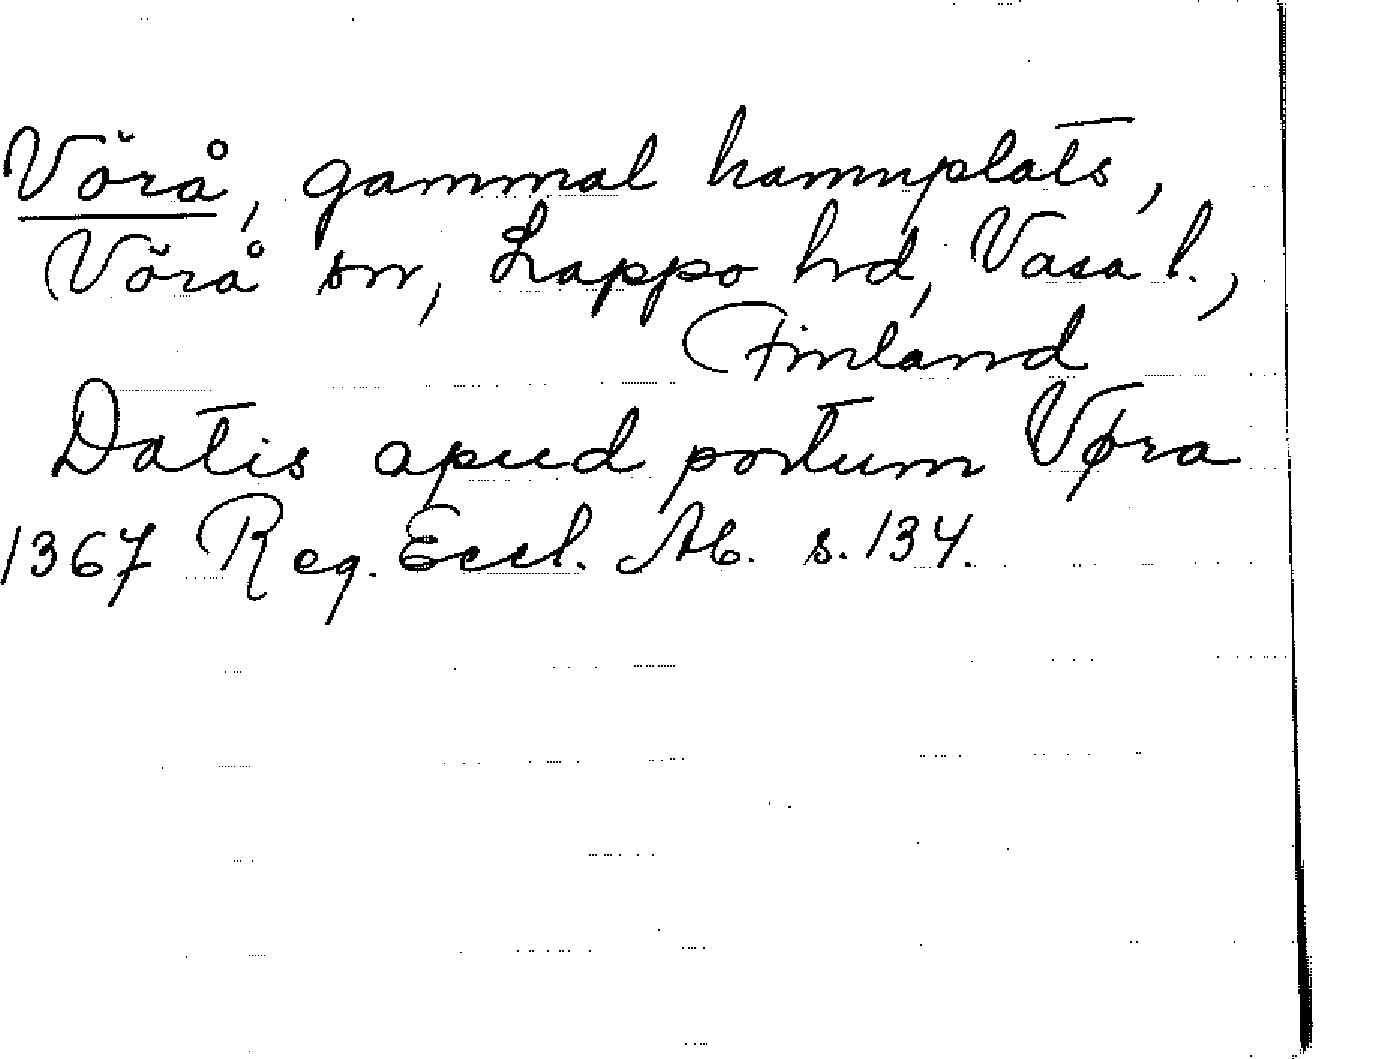 Vörå, gammal hamnplats,
Vörå sn, Lappo hd, Vasa l.,
Finland
Datis apud portum Vøra
1367 Reg. Eccl. Ab. s. 134.